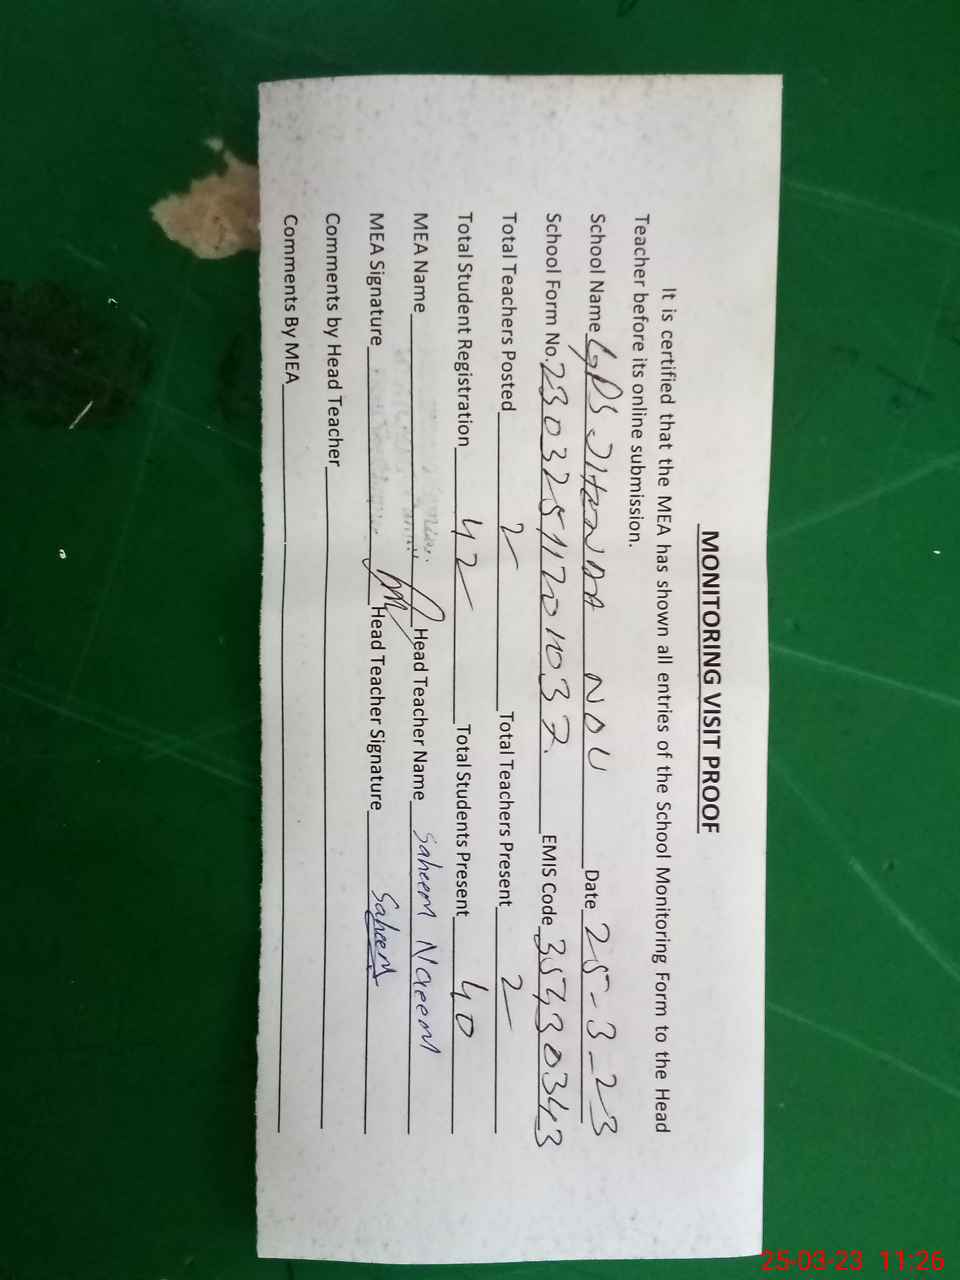 MONITORING VISIT PROOF
It is certified that the MEA has shown all entries of the School Monitoring Form to the Head
Teacher before its online submission.
School Name GPS JitaNAA NOU Date 25-3-23
School Form No. 23032511201037. EMIS Code 35330343
Total Teachers Posted 2 Total Teachers Present 2
Total Student Registration 42 Total Students Present 40
MEA Name Head Teacher Name Saheem Naeem
MEA Signature Head Teacher Signature Saheem
Comments by Head Teacher
Comments By MEA
25-03-23 11:26